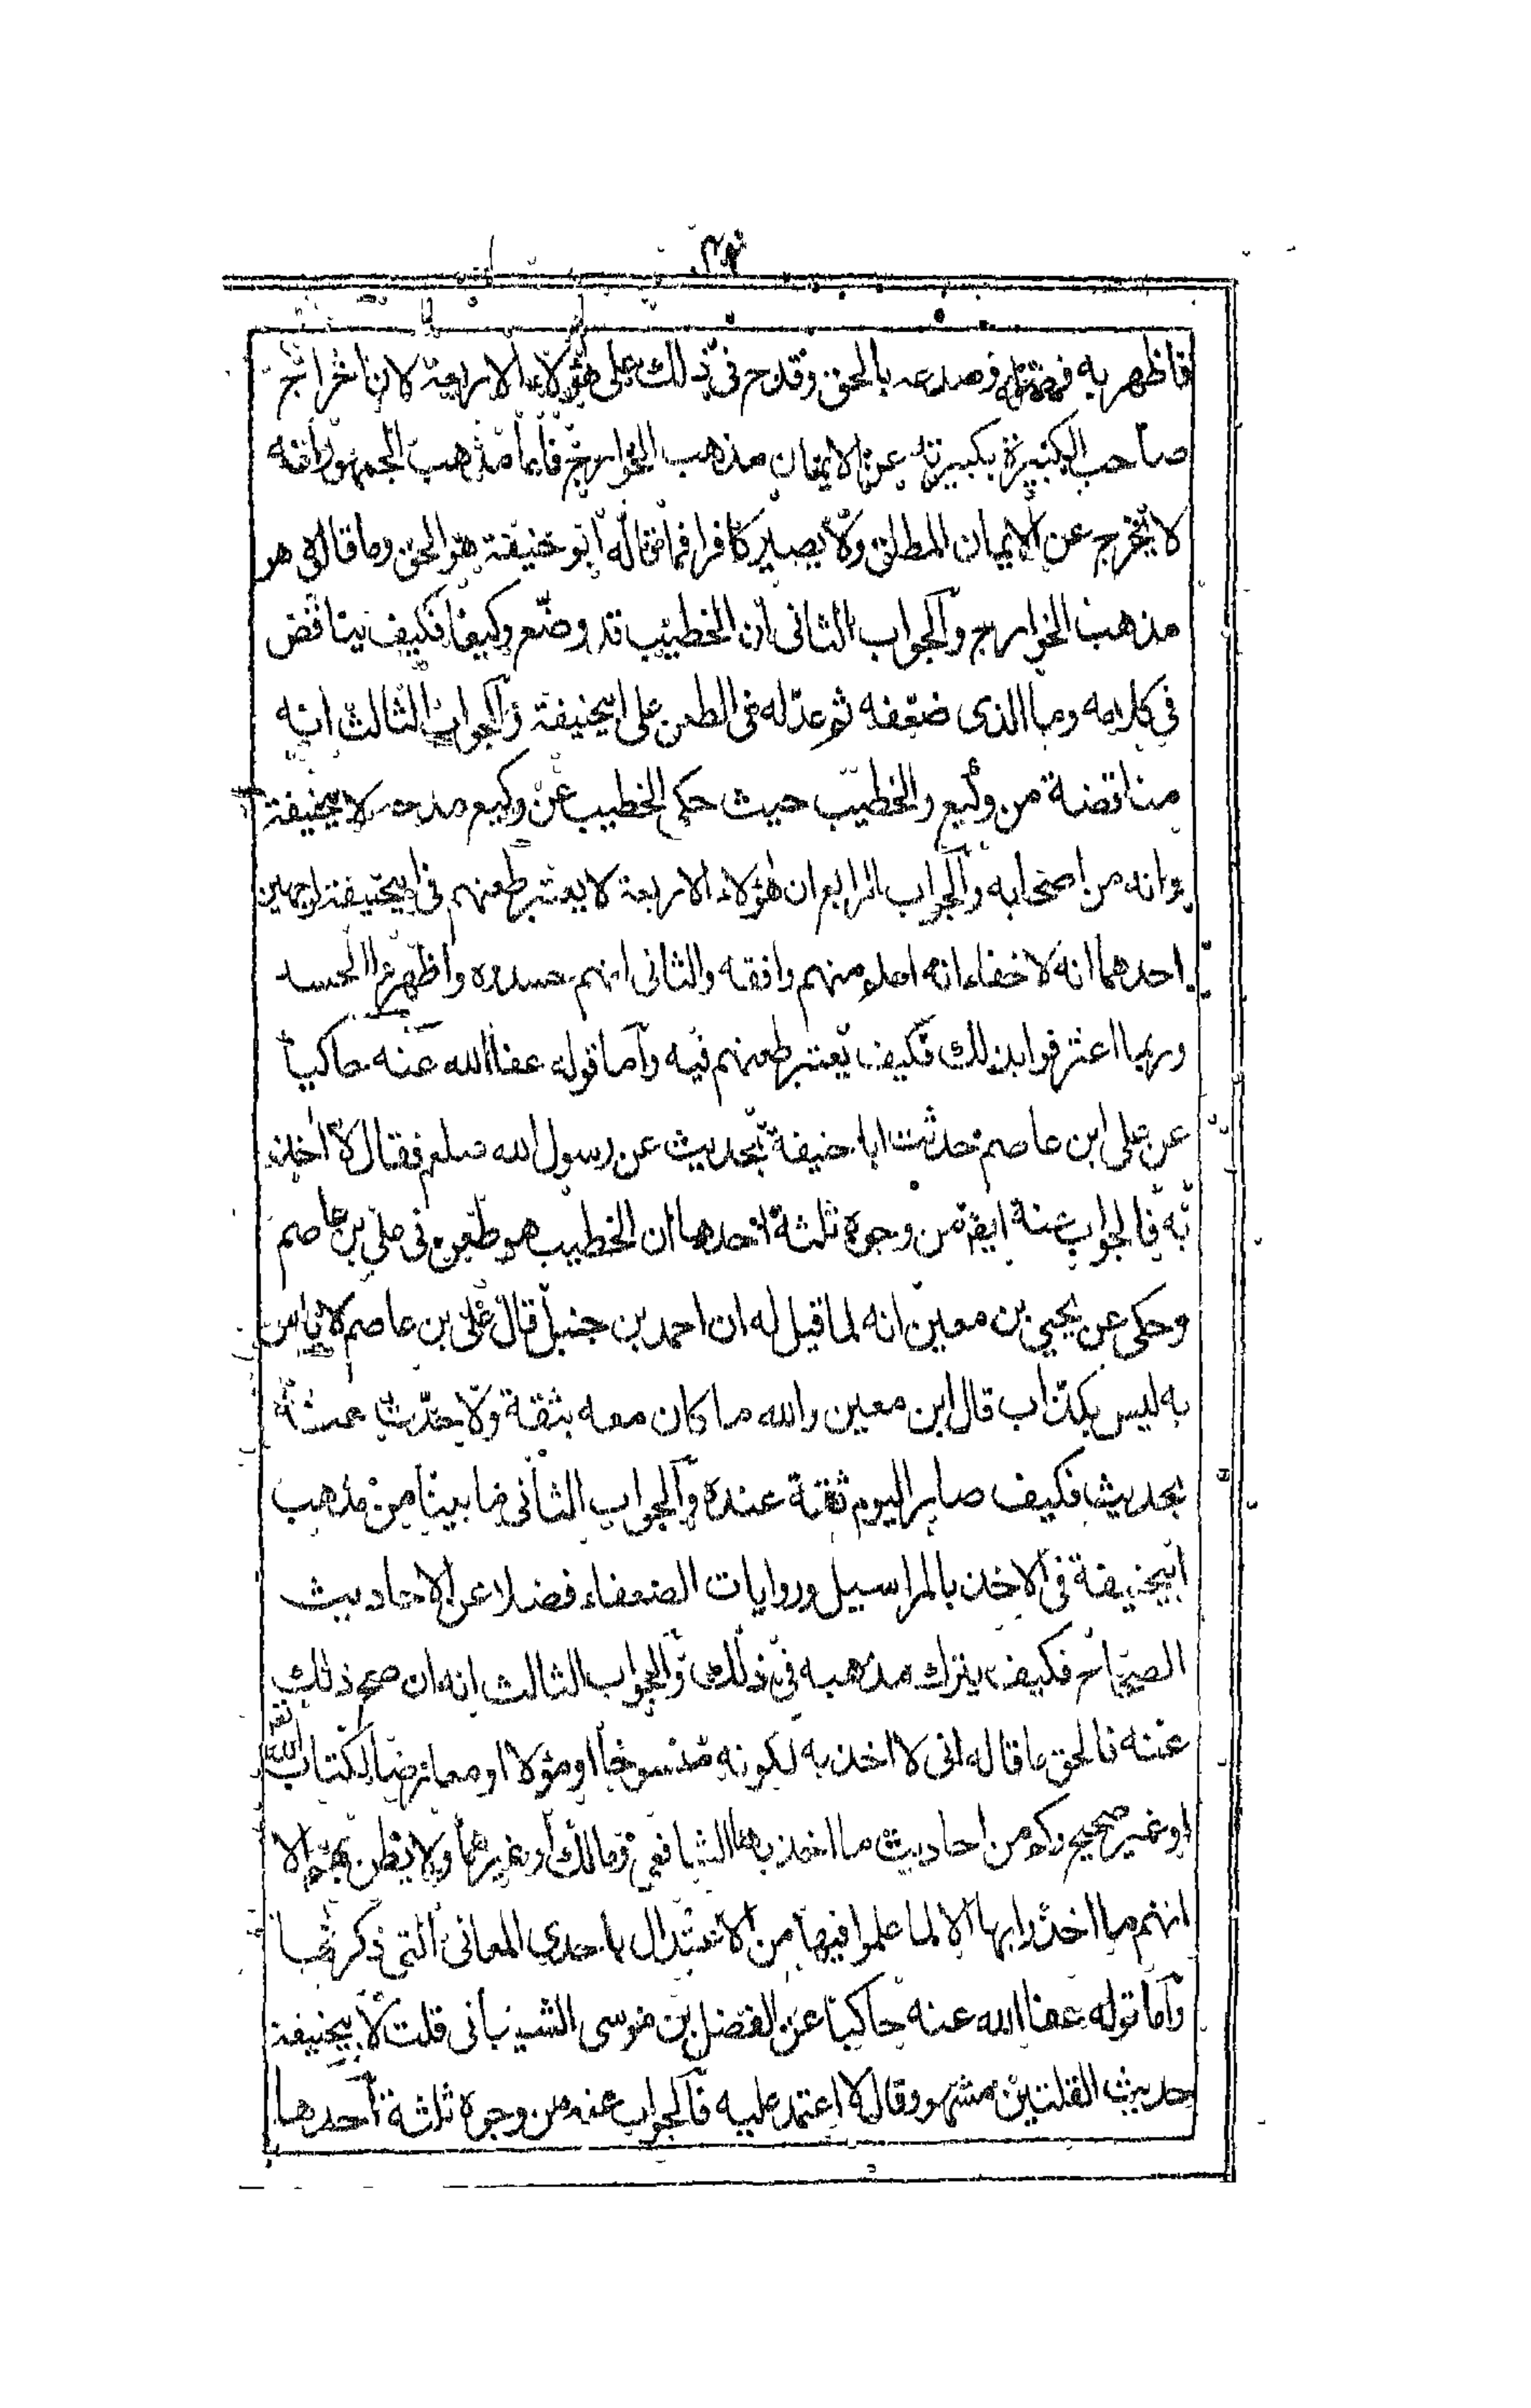 فاظهر به فوصدعه بالحق وقدح فى ذلك على هؤلاء الاربعة لان اخراج
صاحب الكبيرة بكبيرته عن الايمان مذهب الخوارج فاما مذهب الجمهور انه
لا يخرج عن الايمان المطلق ولا يصير كافرا فما قاله ابو حنيفة هو الحق وما قالوا هو
مذهب الخوارج والجواب الثانى ان الخطيب قد وضع وكيعا فكيف يناقض
فى كلامه وما الذى ضعفه ثم عدله فى الطعن على ابيحنيفة والجواب الثالث انه
مناقضة من وكيع والخطيب حيث حكى الخطيب عن وكيع مدحه لابيحنيفة
وانه من اصحابه والجواب الرابع ان هؤلاء الاربعة لا يعتبر طعنهم فى ابيحنيفة لوجهين
احدهما انه لا خفاء انه اعلم منهم وافقه والثانى انهم حسدوه واظهروا الحسد
وربما اعترفوا بذلك فكيف يعتبر طعنهم فيه واما قوله عفا الله عنه حاكيا
عن على ابن عاصم حدثت ابا حنيفة بحديث عن رسول الله صلعم فقال لا اخذ
به فالجواب عنه ايضا من وجوه ثلثة احدها ان الخطيب هو طعن فى على بن عاصم
وحكى عن يحيى بن معين انه لما قيل له ان احمد بن حنبل قال على بن عاصم لا باس
به ليس بكذاب قال ابن معين والله ما كان معه بثقة ولا حدث عنه
بحديث فكيف صار اليوم ثقة عنده والجواب الثانى ما بينا من مذهب
ابيحنيفة فى الاخذ بالمراسيل وروايات الضعفاء فضلا عن الاحاديث
الصحاح فكيف يترك مذهبه فى ذلك والجواب الثالث انه ان صح ذلك
عنه فالحق ما قاله انى لا اخذ به لكونه منسوخا او مؤلا او معارضا لكتاب الله
او غير صحيح وكم من احاديث ما اخذ بها الشافعى ومالك او غيرهما ولا يظن بهم الا
انهم ما اخذوا بها الا لما علموا فيها من الاعتدال باحدى المعانى التى ذكرنا
واما قوله عفا الله عنه حاكيا عن الفضل بن موسى الشيبانى قلت لابيحنيفة
حديث القلتين مشهور وقال لا اعتمد عليه فالجواب عنه من وجوه ثلثة احدها